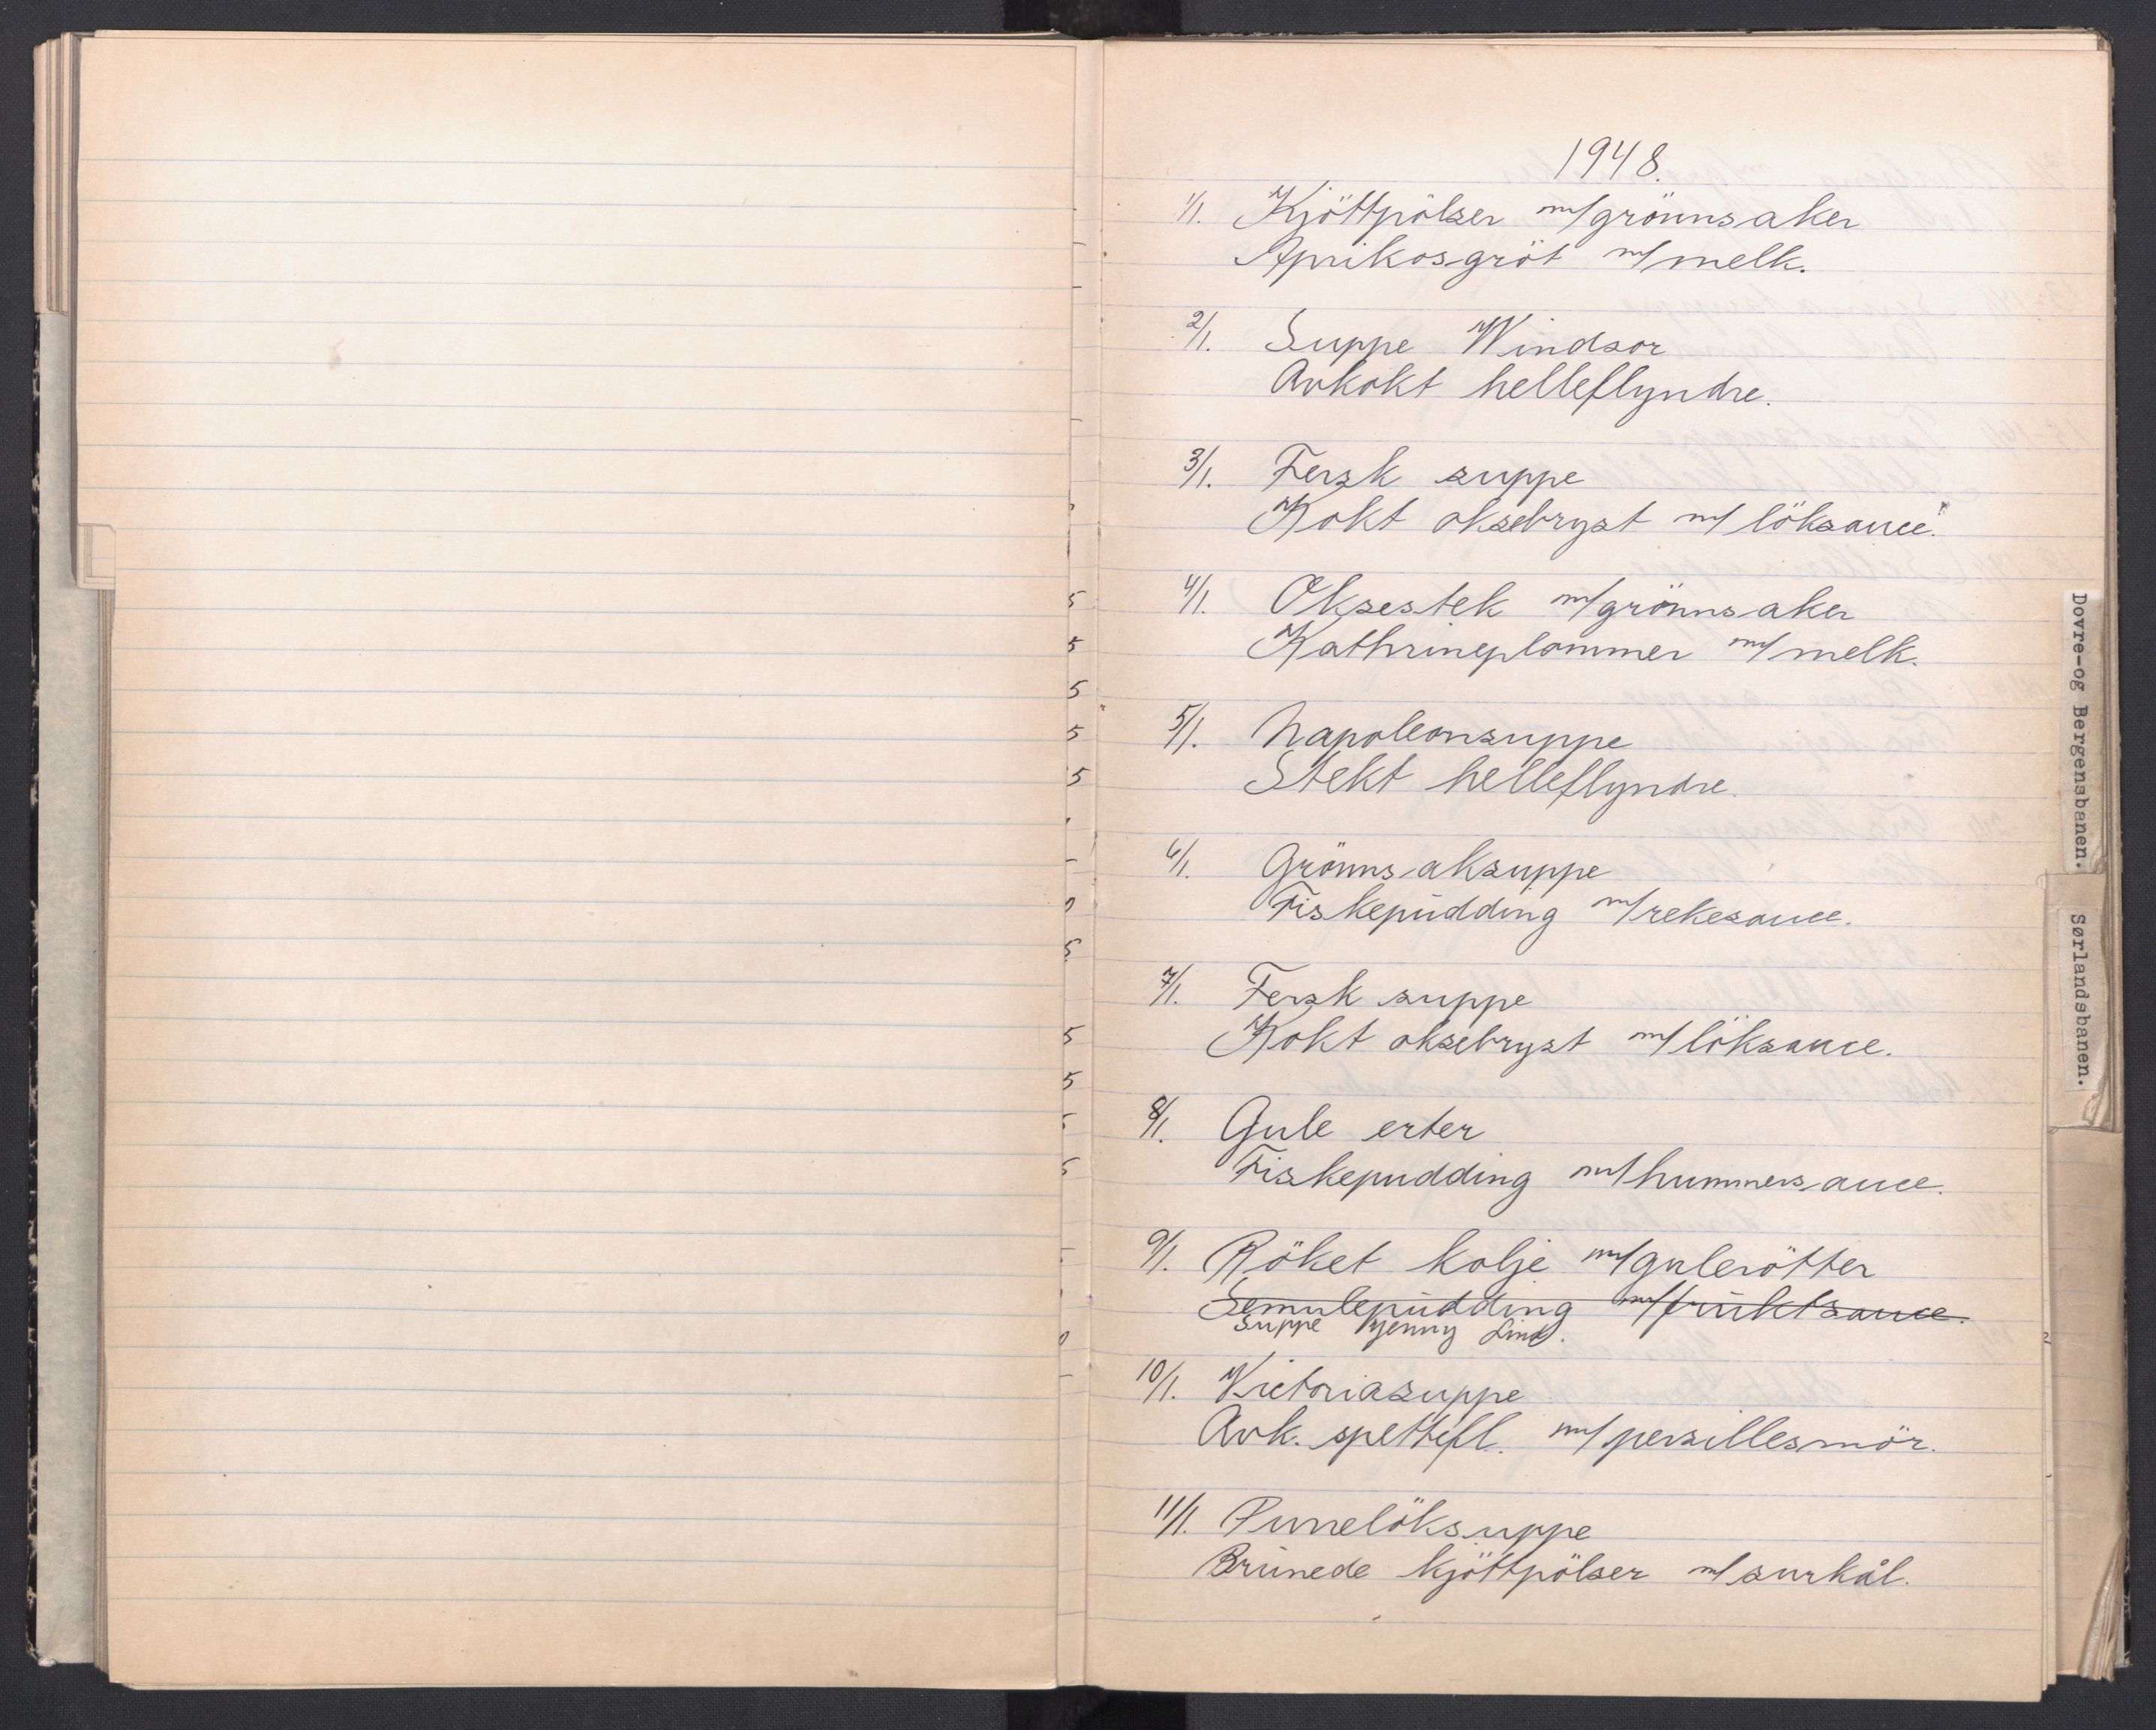 1948.
1/1. Kjöttpölser m/grönnsaker
Aprikosgröt m/melk.
2/1. Suppe Windsor
Avkokt helleflyndre.
3/1. Fersk suppe
Kokt oksebryst m/ löksauce.
4/1. Oksestek m/grönnsaker
Kathrineplommer m/melk.
5/1. Napoleonsuppe
Stekt helleflyndre.
6/1. Grönnsaksuppe
Fiskepudding m/rekesauce.
7/1. Fersk suppe
Kokt oksebryst m/löksauce.
8/1. Gule erter
Fiskepudding m/hummersauce.
9/1. Röket kolje m/gulerötter
Semulepudding m/fruktsauce.
Suppe Jenny Lind.
10/1. Victoriasuppe
Avk. spettefl. m/persillesmör.
11/1. Purrelöksuppe
Brunede kjöttpölser m/surkål.
Dovre-og Bergensbanen.
Sørlandsbanen.